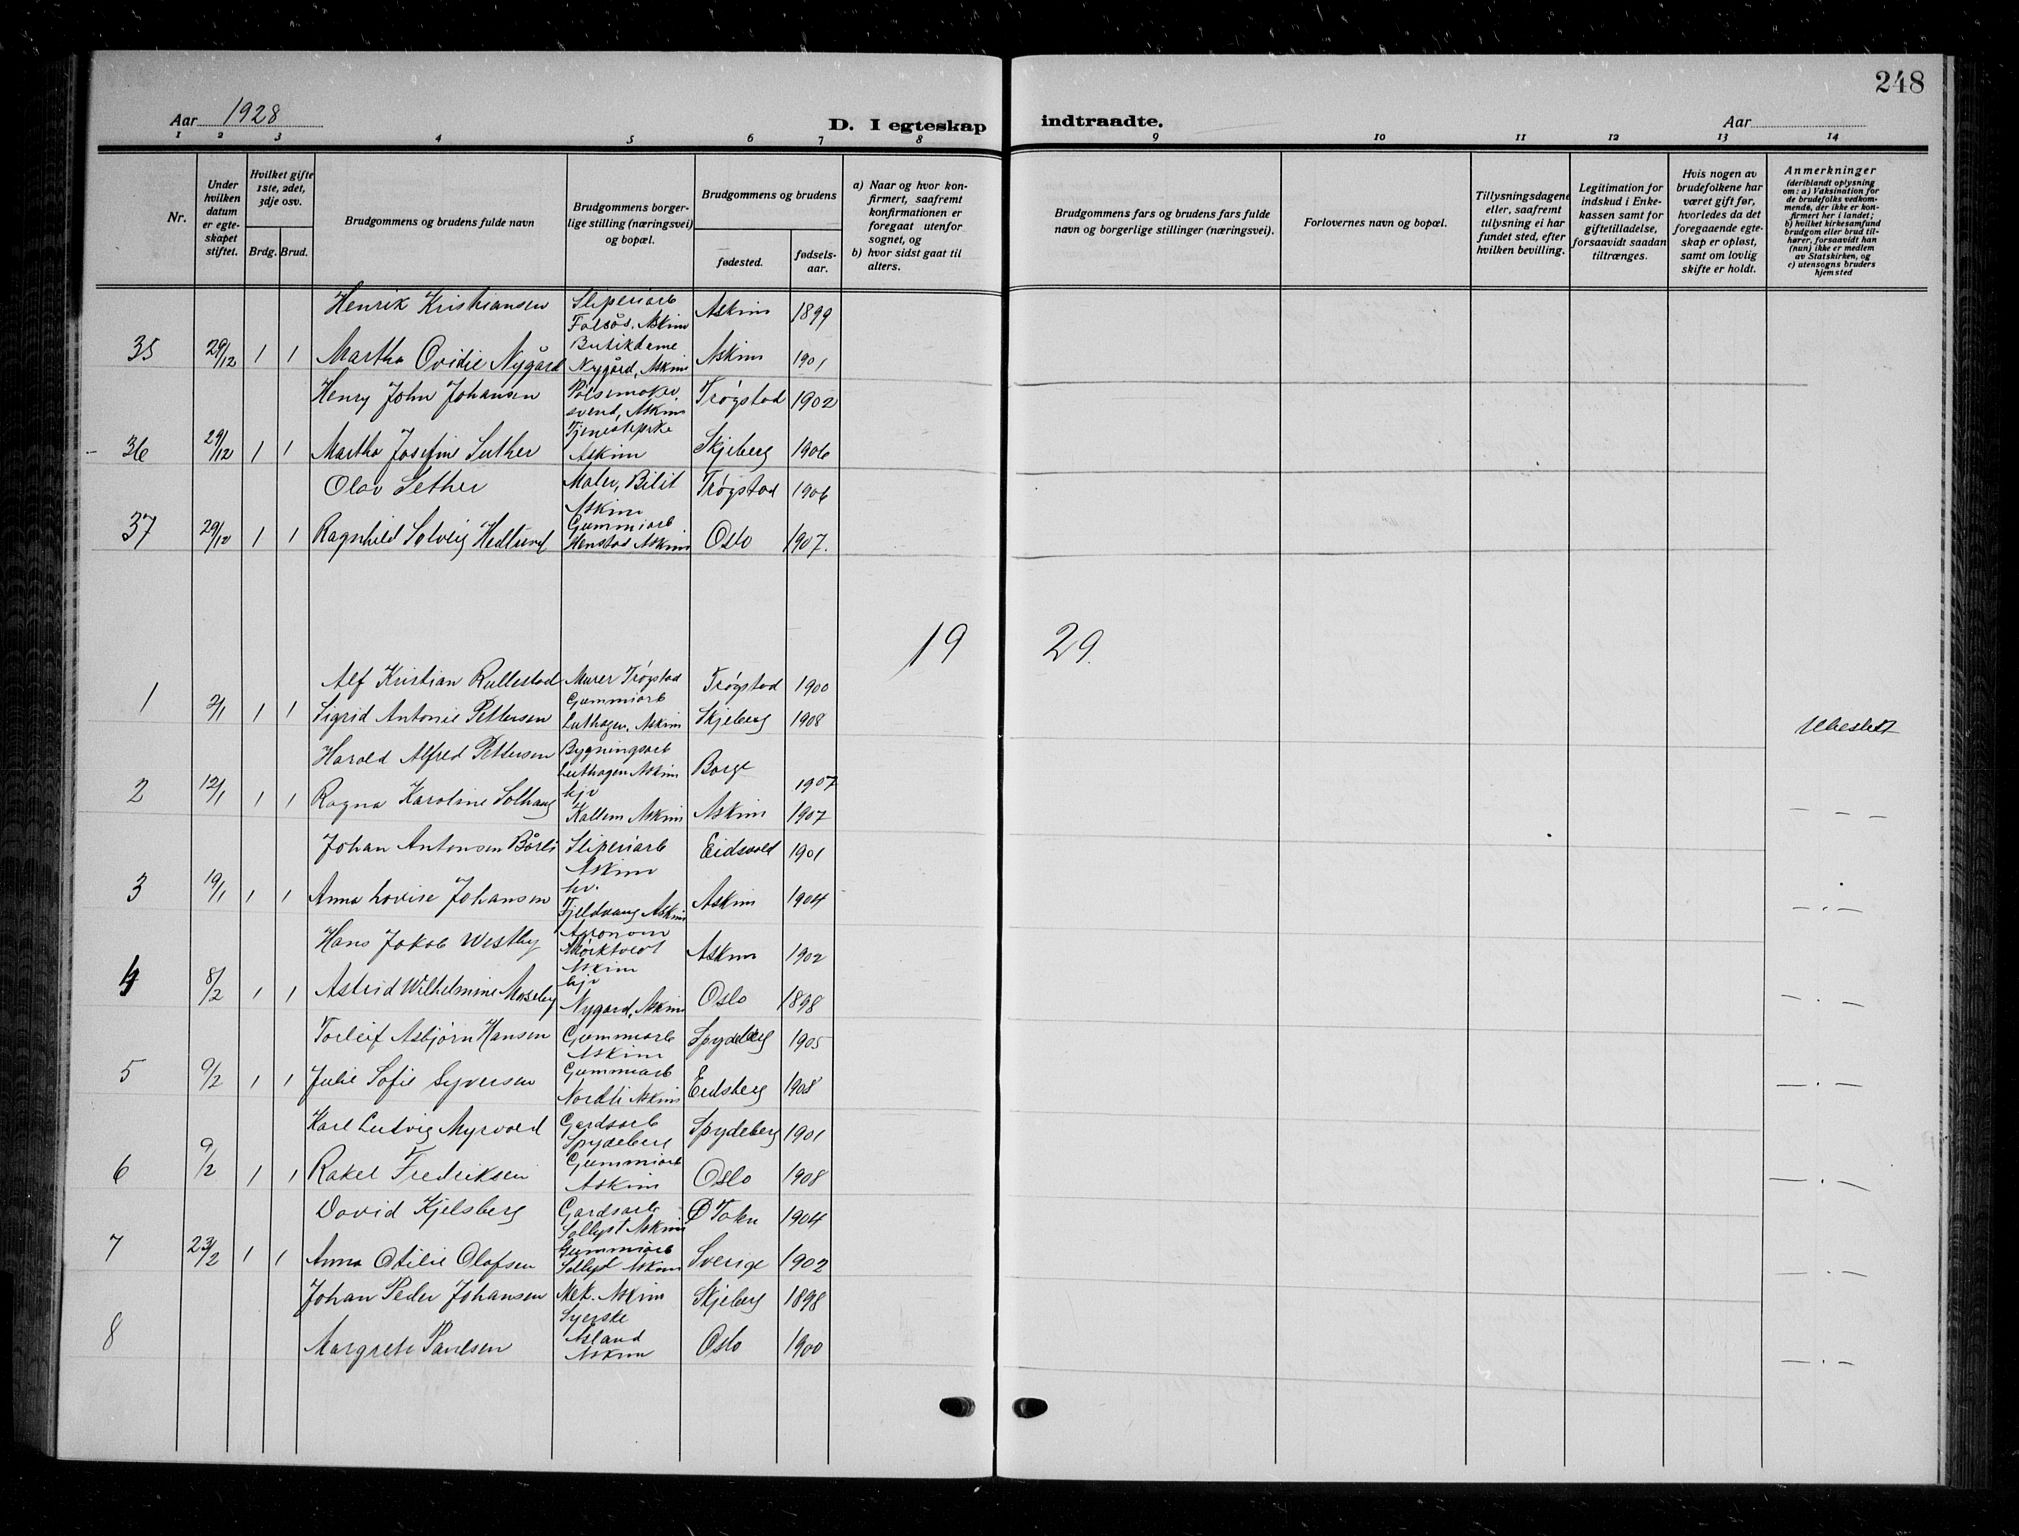 248
Aar 1928
D. I egteskap
indtraadte.
Aar
1 2 3 4 5 6 7 8 9 10 11 12 13 14
Nr.
Under hvilken datum er egteskapet stiftet.
Hvilket gifte 1ste, 2det, 3dje osv.
Brdg. Brud.
Brudgommens og brudens fulde navn
Brudgommens borgerlige stilling (næringsvei) og bopæl.
Brudgommens og brudens
fødested.
fødselsaar.
a) Naar og hvor konfirmert, saafremt konfirmationen er foregaat utenfor sognet, og
b) hvor sidst gaat til alters.
Brudgommens fars og brudens fars fulde navn og borgerlige stillinger (næringsvei).
Forlovernes navn og bopæl.
Tillysningsdagene eller, saafremt tillysning ei har fundet sted, efter hvilken bevilling.
Legitimation for indskud i Enkekassen samt for giftetilladelse, forsaavidt saadan tiltrænges.
Hvis nogen av brudefolkene har været gift før, hvorledes da det foregaaende egteskap er opløst, samt om lovlig skifte er holdt.
Anmerkninger
(deriblandt oplysning om: a) Vaksination for de brudefolks vedkommende, der ikke er konfirmert her i landet; b) hvilket kirkesamfund brudgom eller brud tilhører, forsaavidt han (hun) ikke er medlem av Statskirken, og c) utensogns bruders hjemsted
Henrik Kristiansen Sliperiarb Askim Askim 1899
35 29/12 1 1 Martha Ovidie Nygård Butikdame Nygård, Askim Askim 1901
Henry John Johansen Pølsemaker svend, Askim Trøgstad 1902
36 29/12 1 1 Martha Josefine Suther Askim Skjeberg 1906
Olav Sether Maler, Askim Trøgstad 1906
37 29/12 1 1 Ragnhild Solveig Hedlund Gummiarb Henstad Askim Oslo 1907.
19 29.
Alf Kristian Rullestad Murer Trøgstad Trøgstad 1900
1 2/1 1 1 Sigrid Antonie Pettersen Gummiarb Luthagen, Askim Skjeberg 1908 Ubeslekt
Harald Alfred Pettersen Bygningsarb Luthagen Askim Borge 1907
2 12/1 1 1 Ragna Karoline Solhaug hjv Kallem Askim Askim 1907 — — —
Johan Antonsen Bårli Sliperiarb Askim Eidsvold 1901
3 19/1 1 1 Anna Lovise Johansen hv. Fjeldvang Askim Askim 1904 — . —
Hans Jakob Westby Agronom Mørktvedt Askim Askim 1902
4 8/2 1 1 Astrid Wilhelmine Moseby hjv Nygard, Askim Oslo 1898 — . —
Torleif Asbjørn Hansen Gummiarb Askim Spydeberg 1905
5 9/2 1 1 Julie Sofie Syversen Gummiarb Nordli Askim Eidsberg 1908 — . —
Karl Ludvig Myrvold Gardsarb Spydeberg Spydeberg 1901
6 9/2 1 1 Rakel Fredriksen Gummiarb Askim Oslo 1908 — . —
David Kjelsberg Gardsarb Sollyst Askim Ø Toten 1904
7 23/2 1 1 Anna Otilie Olafsen Gummiarb Sollyst Askim Sverige 1902 — . —
Johan Peder Johansen Mek. Askim Skjeberg 1898
8 Margrete Paulsen Syerske Åsland Askim Oslo 1900 — . —